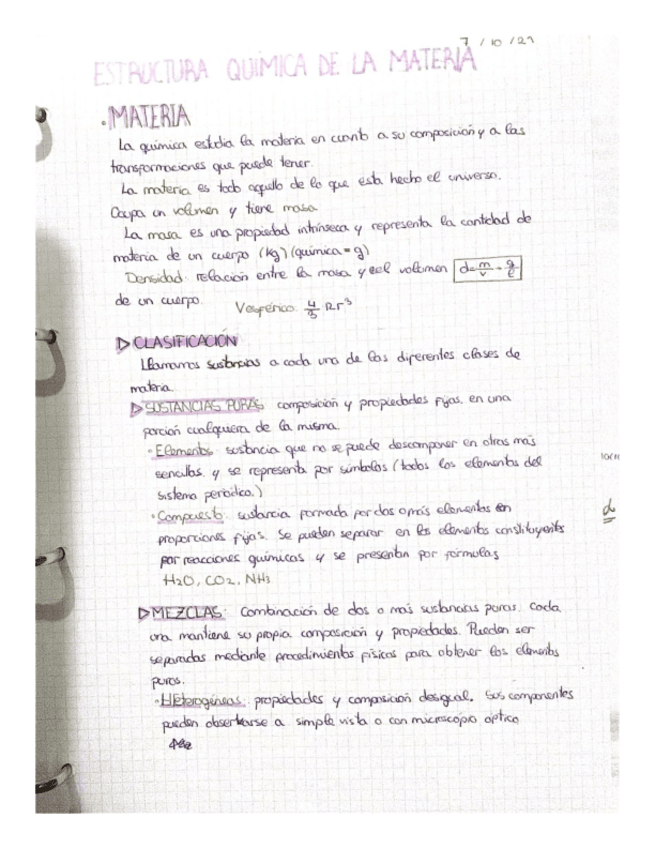 7 / 10 / 21
ESTRUCTURA QUÍMICA DE LA MATERIA
· MATERIA
La química estudia la materia en cuanto a su composición y a las
transformaciones que puede tener.
La materia es todo aquello de lo que esta hecho el universo.
Ocupa un volumen y tiene masa
La masa es una propiedad intrínseca y representa la cantidad de
materia de un cuerpo (kg) (química = g)
Densidad: relación entre la masa y el volumen d = m/v = g/l
de un cuerpo. Vesférico: 4/3 πr³
▷ CLASIFICACIÓN
Llamamos sustancias a cada una de las diferentes clases de
materia.
▷ SUSTANCIAS PURAS: composición y propiedades fijas, en una
porción cualquiera de la misma.
· Elementos: sustancia que no se puede descomponer en otras más
sencillas, y se representa por símbolos (todos los elementos del
sistema periódico.)
· Compuesto: sustancia formada por dos o más elementos en
proporciones fijas. Se pueden separar en los elementos constituyentes
por reacciones químicas y se presentan por fórmulas
H2O, CO2, NH3
▷ MEZCLAS: Combinación de dos o más sustancias puras. Cada
una mantiene su propia composición y propiedades. Pueden ser
separadas mediante procedimientos físicos para obtener los elementos
puros.
· Heterogéneas: propiedades y composición desigual. Sus componentes
pueden observarse a simple vista o con microscopio óptico